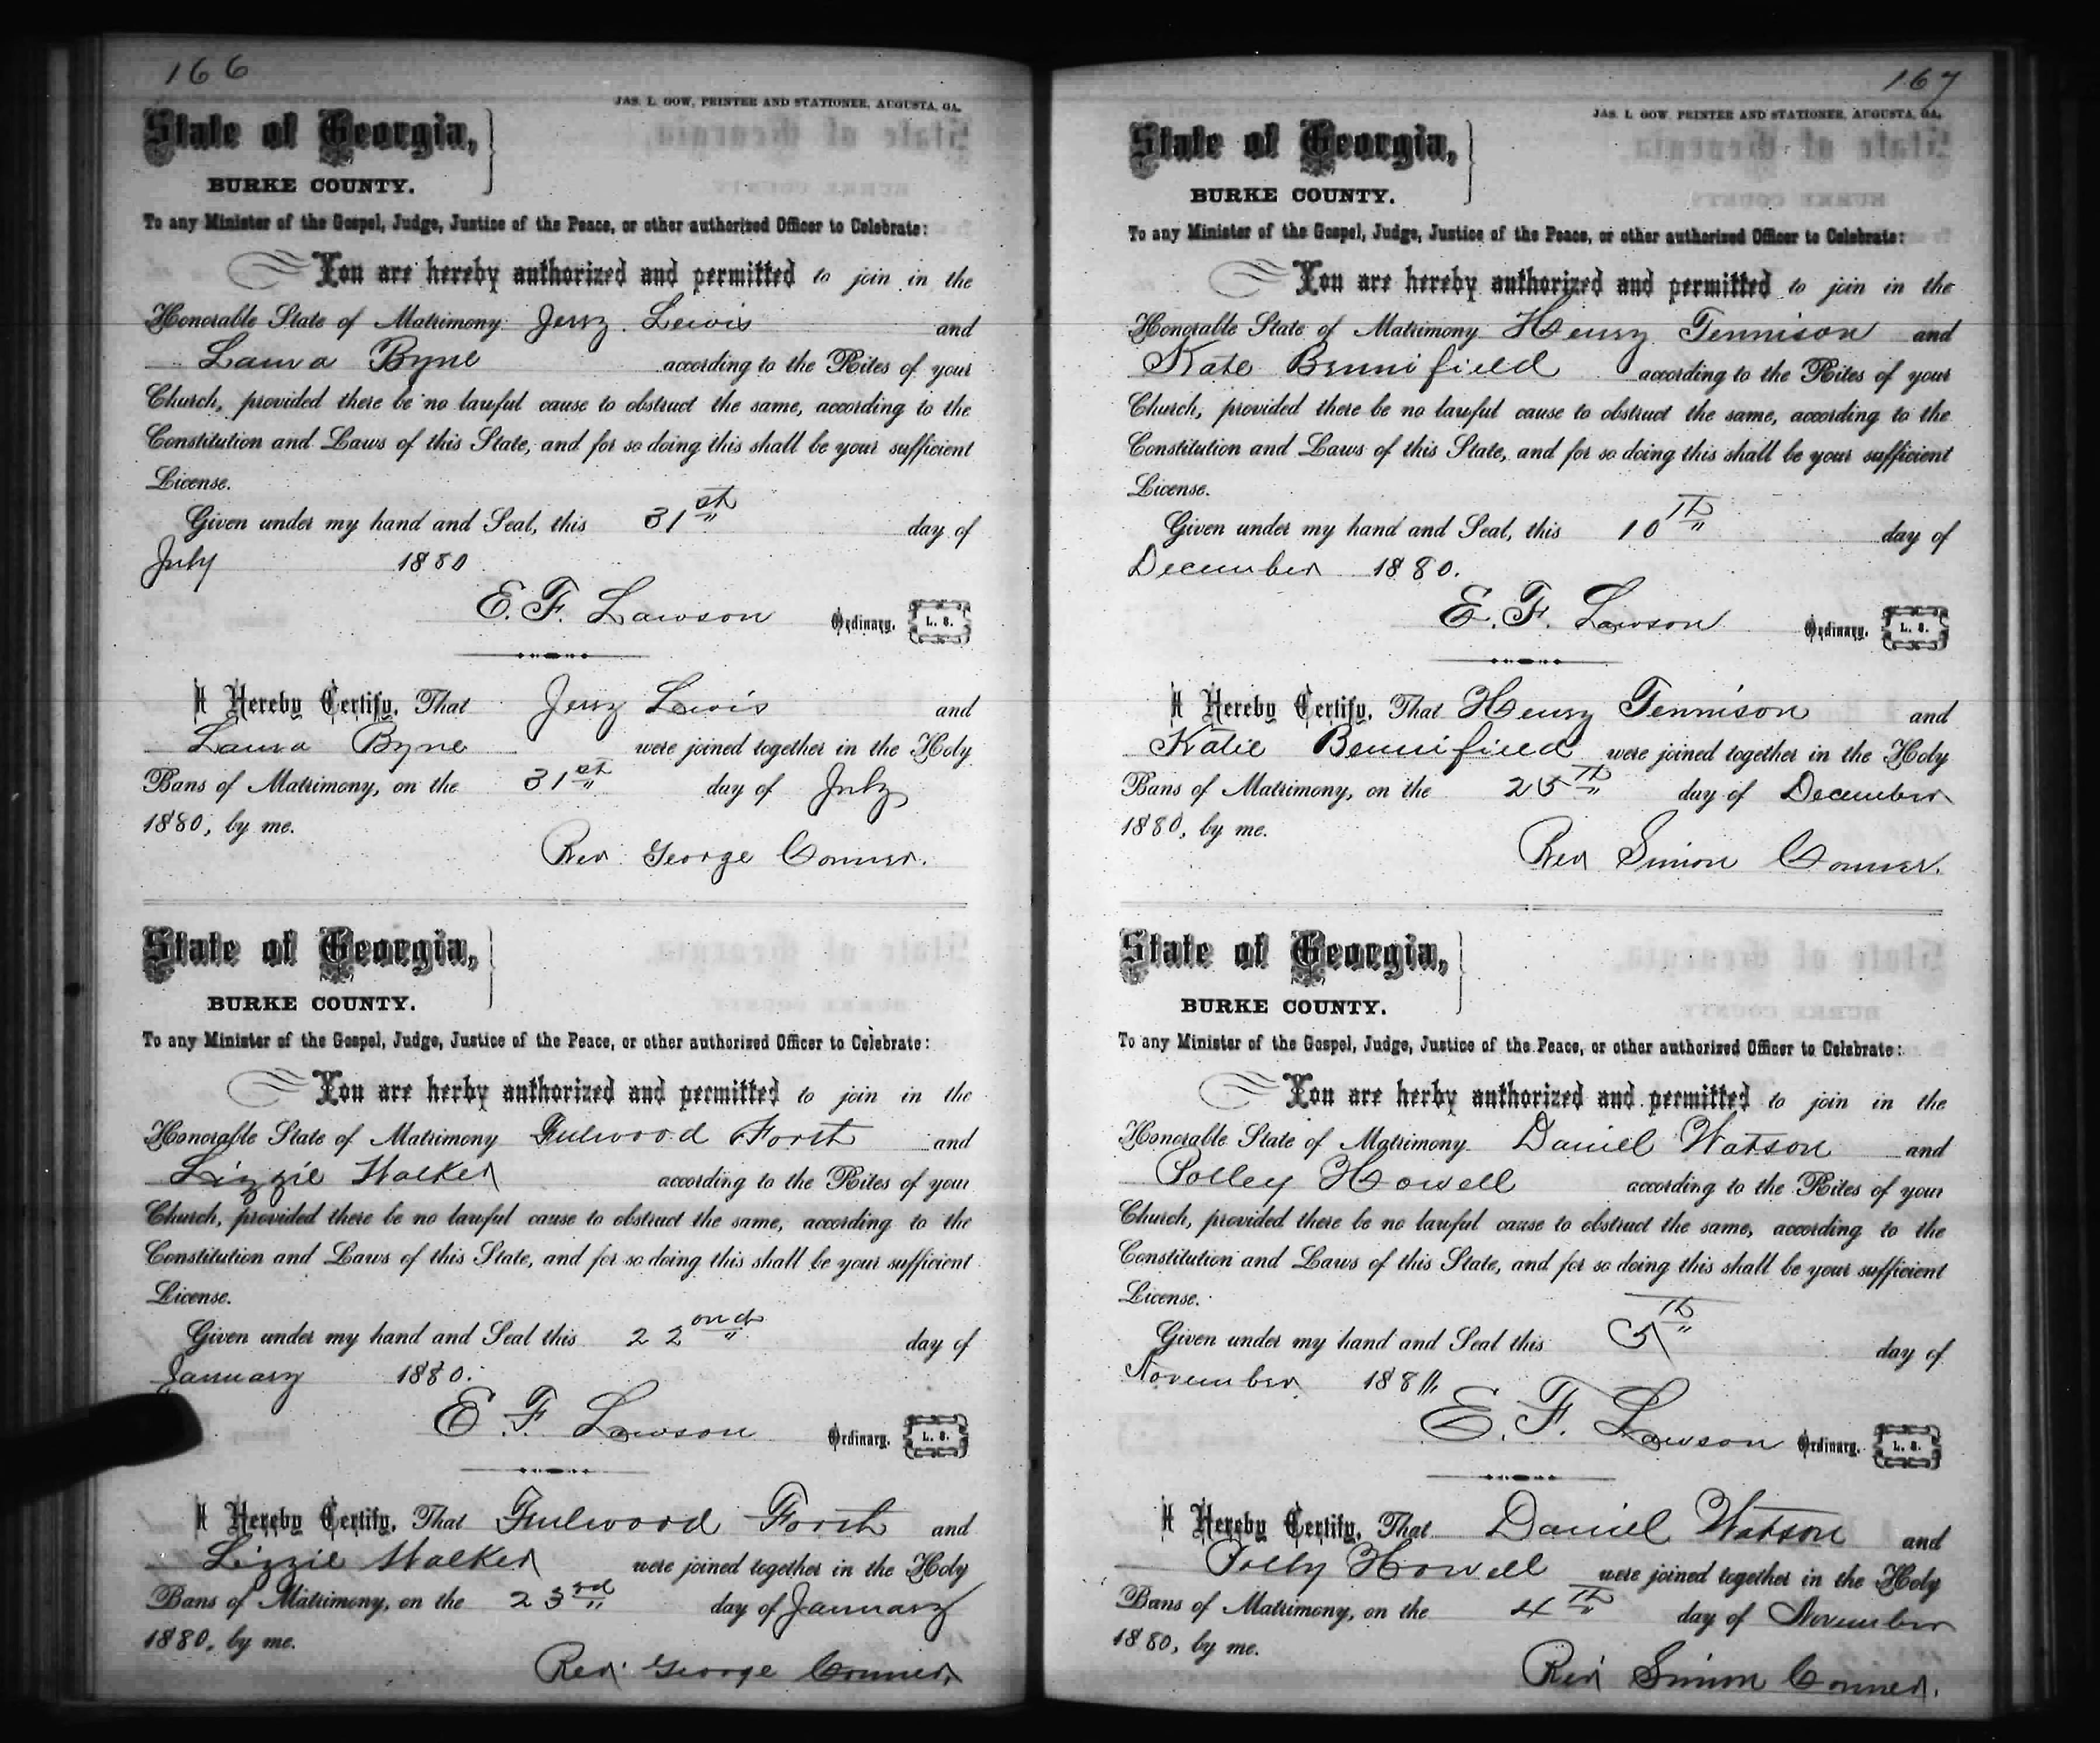 166
JAS. L. GOW, PRINTER AND STATIONER, AUGUSTA, GA.
State of Georgia,
BURKE COUNTY.
To any Minister of the Gospel, Judge, Justice of the Peace, or other authorized Officer to Celebrate:
You are hereby authorized and permitted to join in the
Honorable State of Matrimony Jerry Lewis and
Laura Byne according to the Rites of your
Church, provided there be no lawful cause to obstruct the same, according to the
Constitution and Laws of this State, and for so doing this shall be your sufficient
License.
Given under my hand and Seal, this 31st day of
July 1880
E. F. Lawson Ordinary. L. S.
I Hereby Certify, That Jerry Lewis and
Laura Byne were joined together in the Holy
Bans of Matrimony, on the 31st day of July
1880, by me.
Rev. George Conner.
State of Georgia,
BURKE COUNTY.
To any Minister of the Gospel, Judge, Justice of the Peace, or other authorized Officer to Celebrate:
You are herby authorized and permitted to join in the
Honorable State of Matrimony Fulwood Forth and
Lizzie Walker according to the Rites of your
Church, provided there be no lawful cause to obstruct the same, according to the
Constitution and Laws of this State, and for so doing this shall be your sufficient
License.
Given under my hand and Seal this 22ond day of
January 1880.
E. F. Lawson Ordinary. L. S.
I Hereby Certify, That Fulwood Forth and
Lizzie Walker were joined together in the Holy
Bans of Matrimony, on the 23rd day of January
1880, by me.
Rev. George Conner.
167
JAS. L. GOW, PRINTER AND STATIONER, AUGUSTA, GA.
State of Georgia,
BURKE COUNTY.
To any Minister of the Gospel, Judge, Justice of the Peace, or other authorized Officer to Celebrate:
You are hereby authorized and permitted to join in the
Honorable State of Matrimony Henry Tennison and
Kate Bennifield according to the Rites of your
Church, provided there be no lawful cause to obstruct the same, according to the
Constitution and Laws of this State, and for so doing this shall be your sufficient
License.
Given under my hand and Seal, this 10th day of
December 1880.
E. F. Lawson Ordinary. L. S.
I Hereby Certify, That Henry Tennison and
Katie Bennifield were joined together in the Holy
Bans of Matrimony, on the 25th day of December
1880, by me.
Rev Simon Conner.
State of Georgia,
BURKE COUNTY.
To any Minister of the Gospel, Judge, Justice of the Peace, or other authorized Officer to Celebrate:
You are herby authorized and permitted to join in the
Honorable State of Matrimony Daniel Watson and
Polley Howell according to the Rites of your
Church, provided there be no lawful cause to obstruct the same, according to the
Constitution and Laws of this State, and for so doing this shall be your sufficient
License.
Given under my hand and Seal this 5th day of
November
E. F. Lawson Ordinary. L. S.
I Hereby Certify, That Daniel Watson and
Polly Howell were joined together in the Holy
Bans of Matrimony, on the 4th day of November
1880, by me.
Rev Simon Conner.